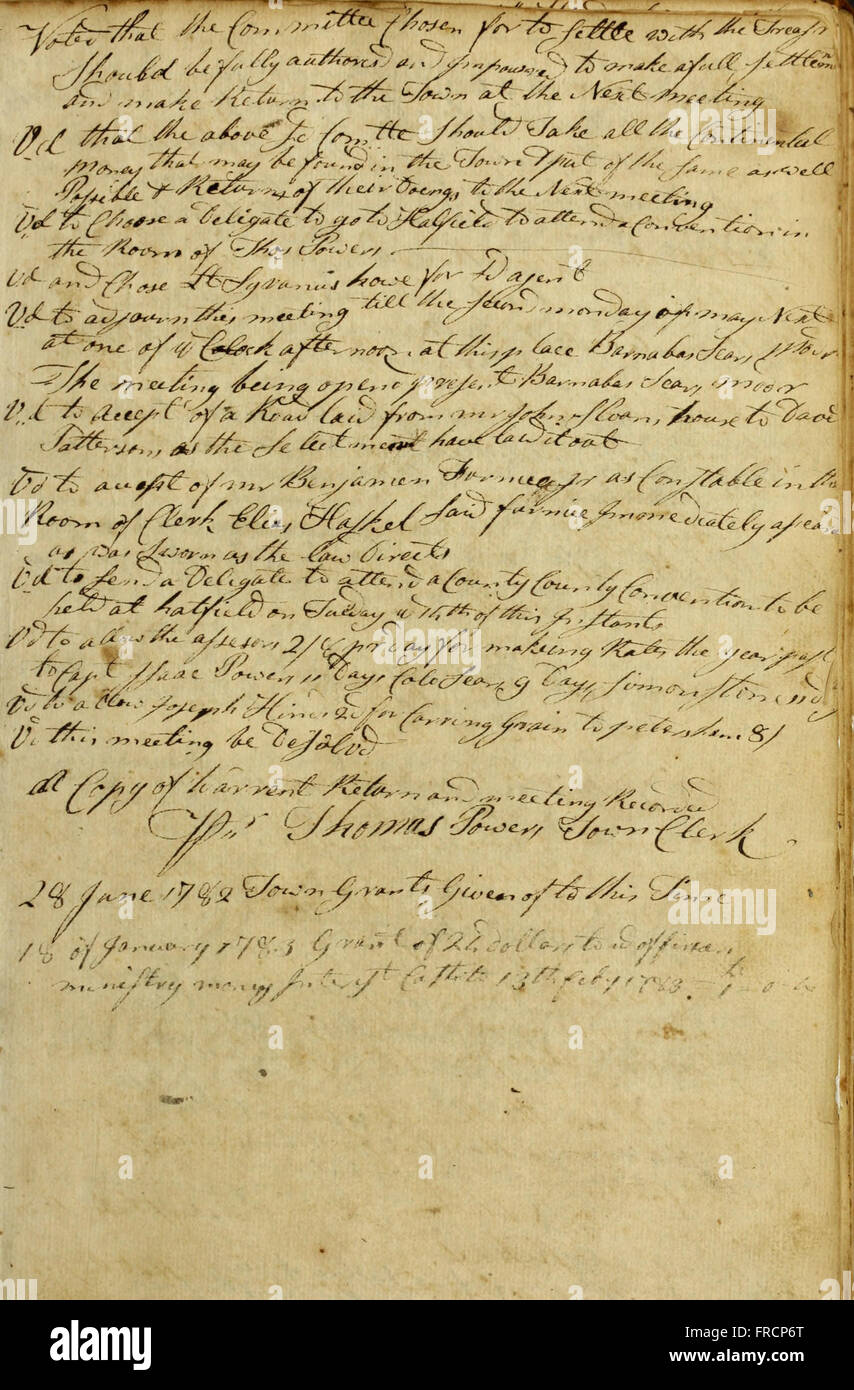 Voted that the Committee Chosen for to Settle with the Treasr
Should be fully authorised and impowred to make a full Settlem
and make Return to the Town at the Next meeting
Vd that the above sd Comtte Should Take all the Continental
money that may be found in the Town & put of the Same as well
Possible & Return of their Doengs to the Next meeting
Vd to Choose a Deligate to go to Hatfield to attend a Convention in
the Room of Thos Powers
Vd and Chose Lt Sylvanus howe for sd agent
Vd to adjourn this meeting till the Second monday of may Next
at one of ye Clock afternoon at this place Barnabas Sears modr
The meeting being opend present Barnabas Sears modr
Vd to accept of a Road laid from mr John Sloans house to David
Pattersons as the Selectmen have laid it out
Vd to accept of mr Benjamen Furmer as Constable in the
Room of Clerk Elias Haskel Said immediately
as was Sworn as the law Directs
Vd to Send a Deligate to attend a County County Convention to be
held at hatfield on of this Instant
Vd to allow the assesors 2/8 pr day for making Rates the year past
to Capt Isaac Powers 11 Days Cole Sears 9 Days Simon Stone
Vd to allow Joseph Hinds for Carring Grain to petersham 8/
Vd this meeting be Desolvd
a Copy of Warrent Return and meeting Recorded
Pr Thomas Powers Town Clerk
28 June 1782 Town Grants Given of to this Time
18 of January 1783 Grant of dollars to
ministry money Interest Cast to 13th feby 1783
alamy
FRCP6T
www.alamy.com